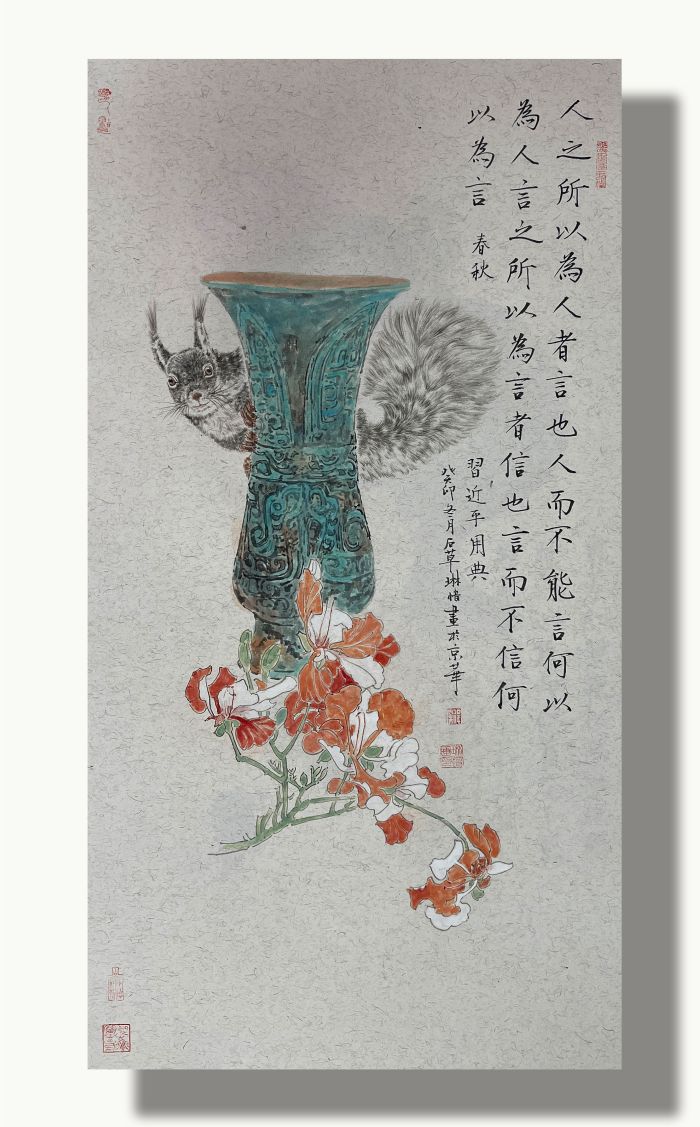 人之所以為人者言也人而不能言何以
為人言之所以為言者信也言而不信何
以為言 春秋
習近平用典
癸卯冬月石草琳畫於京華